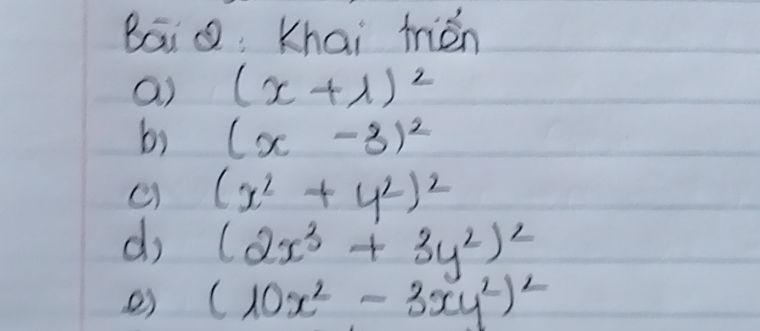 Bài 2: Khai triển
a) (x + 1)²
b) (x - 3)²
c) (x² + y²)²
d) (2x³ + 3y²)²
e) (10x² - 3xy²)²